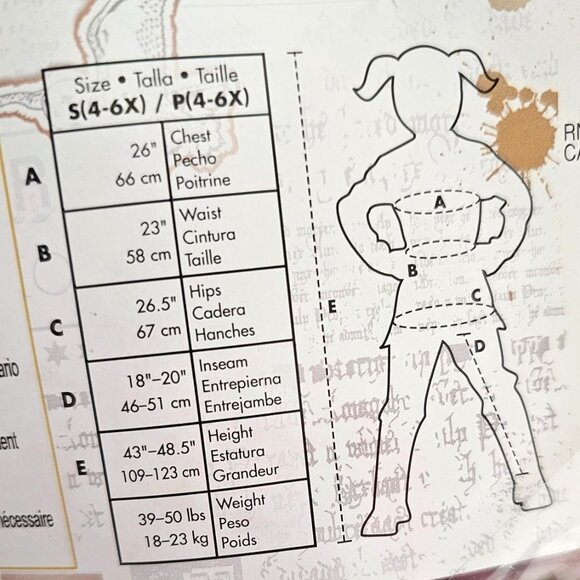 Size • Talla • Taille
S(4-6X) / P(4-6X)
A
26"
66 cm
Chest
Pecho
Poitrine
B
23"
58 cm
Waist
Cintura
Taille
C
26.5"
67 cm
Hips
Cadera
Hanches
D
18"–20"
46–51 cm
Inseam
Entrepierna
Entrejambe
E
43"–48.5"
109–123 cm
Height
Estatura
Grandeur
39–50 lbs
18–23 kg
Weight
Peso
Poids
A
B
C
D
E
RN
nécessaire